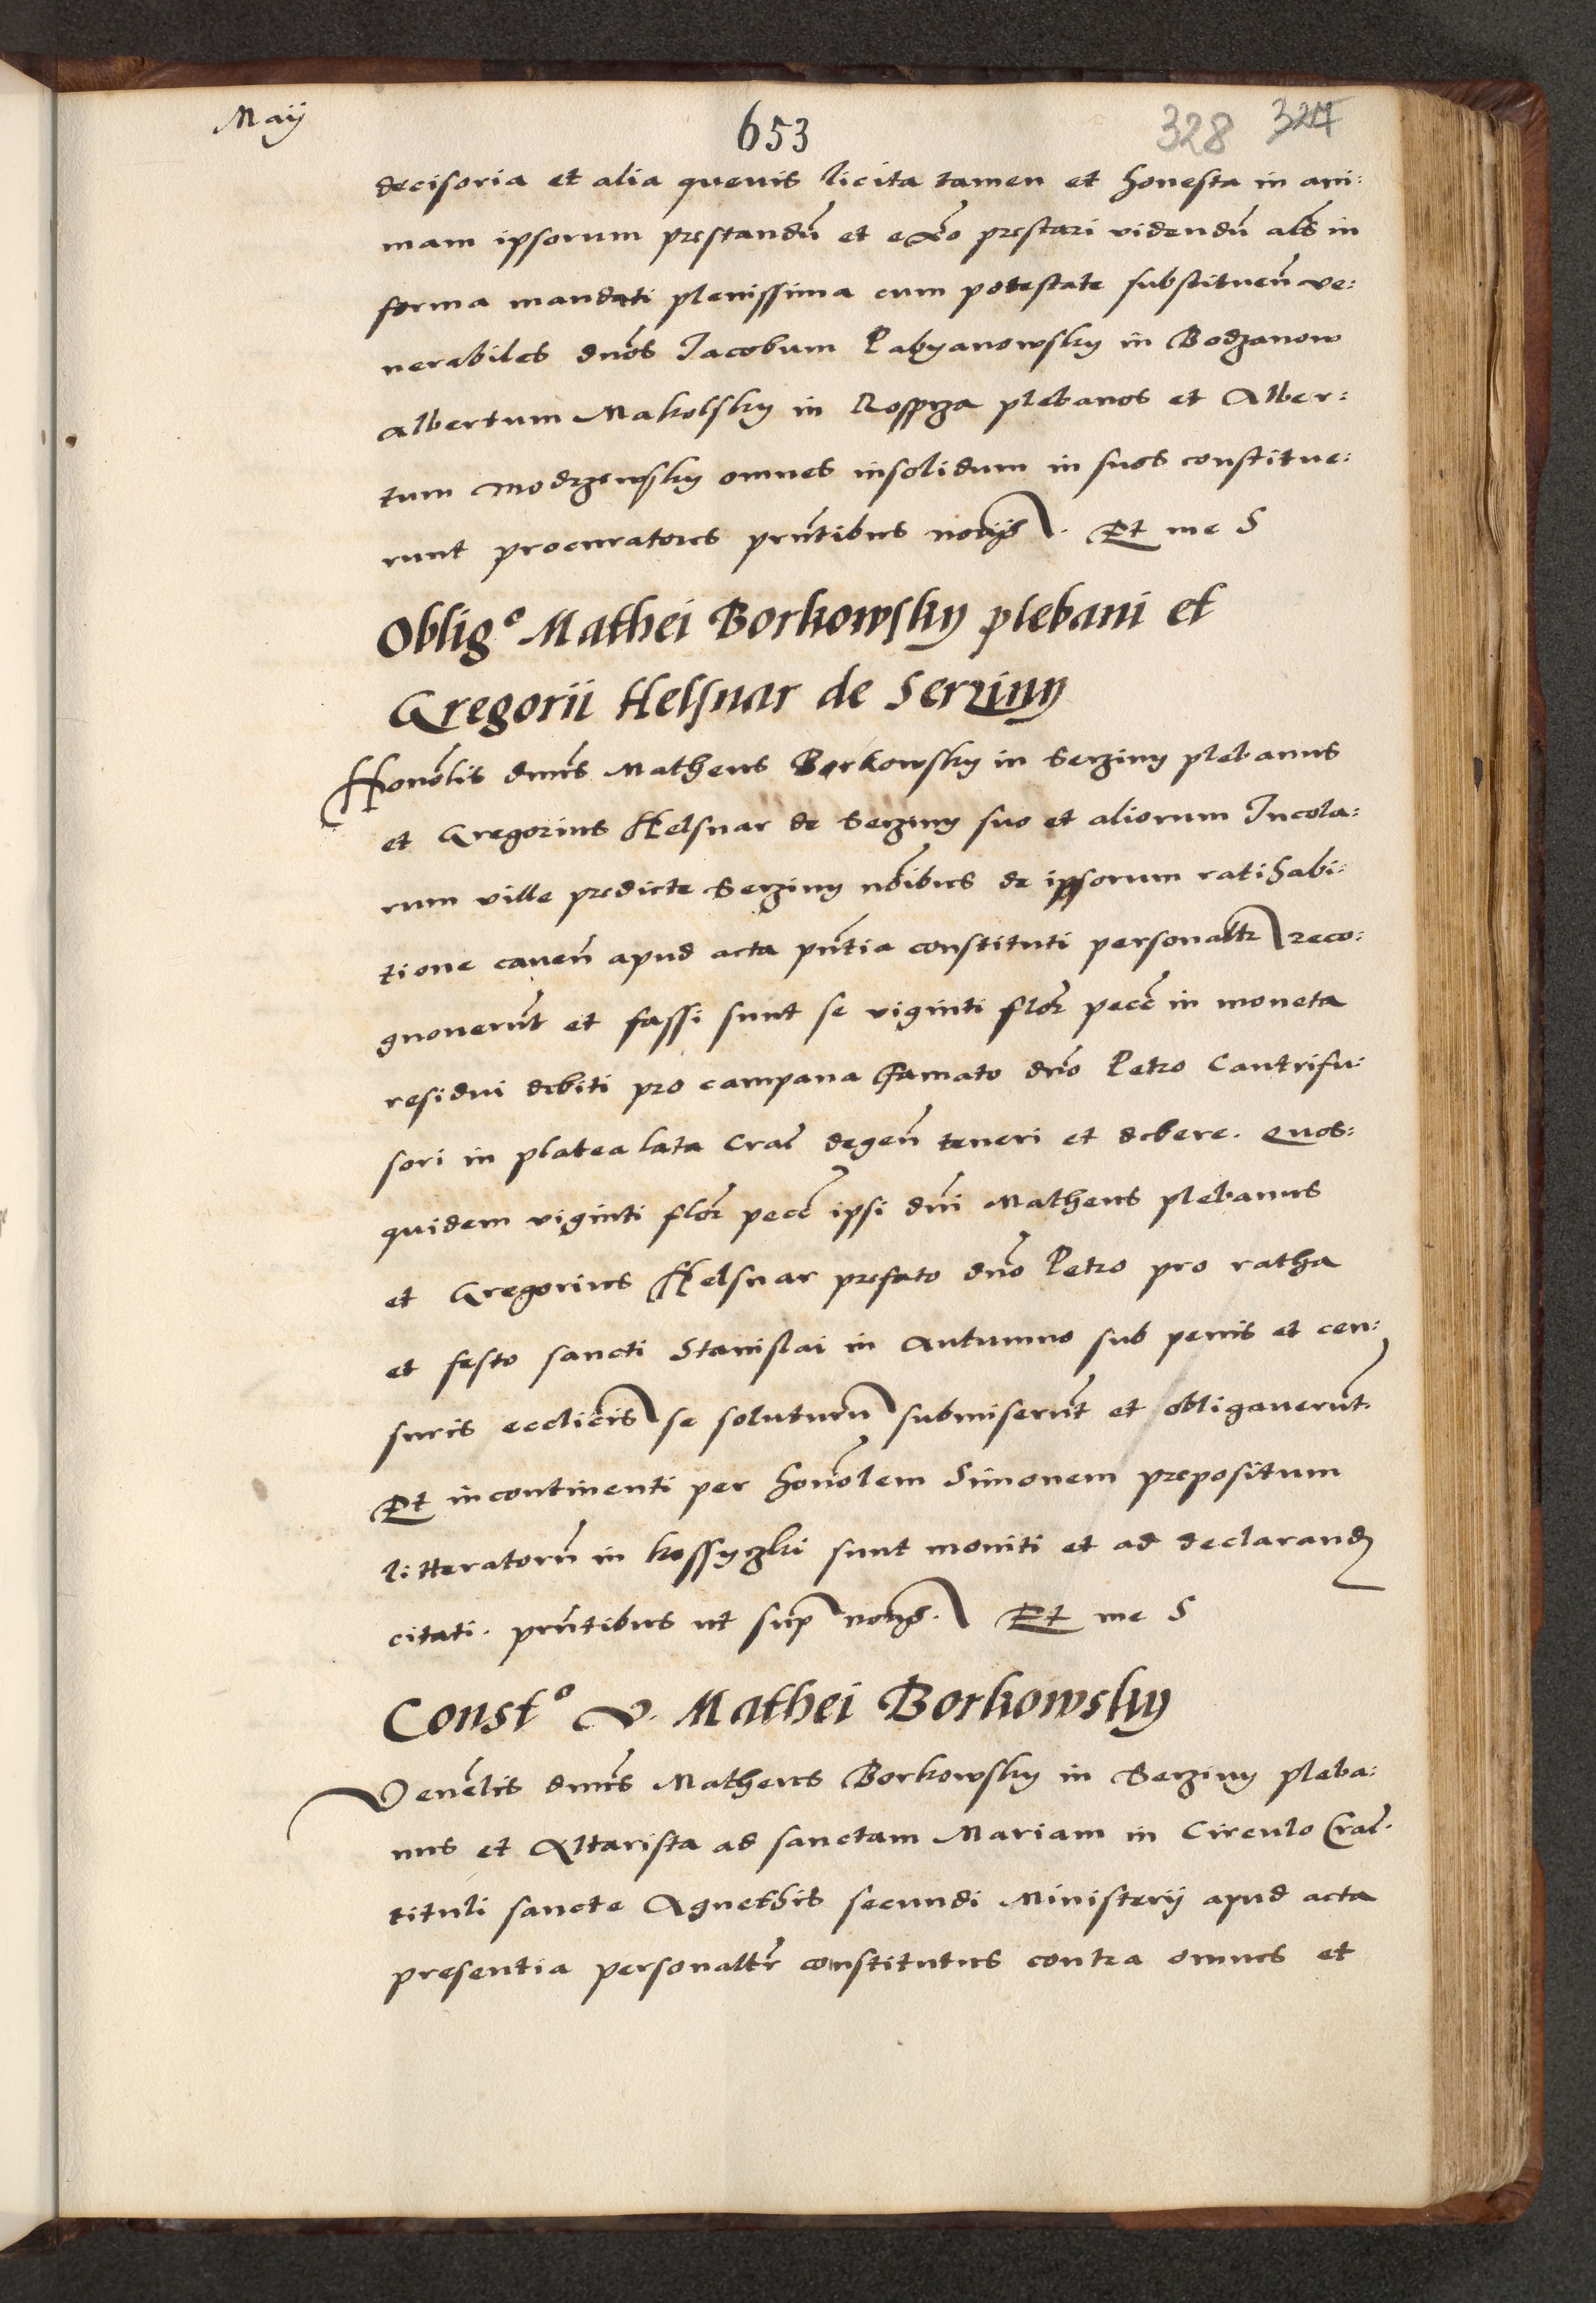 Maij
653
328 327
decisoria et alia quevis licita tamen et honesta in ani:
mam ipsorum prestandũ et exno prestari videndũ als in
forma mandati plenissima cum potestate substituen̄ ve:
nerabiles dnos Jacobum Pabyanowsky in Bodzanow
Albertum Makolsky in Rosprza plebanos et Alber:
tum Modrzewsky omnes insolidum in suos constitue:
runt procuratores pñtibus Et me S
Oblig° Mathei Borkowsky plebani et
Gregorii Helsnar de Serziny
Honolis dnus Matheus Borkowsky in Serziny plebanus
et Gregorius Helsnar de Serziny suo et aliorum Incola:
rum ville predicte Serziny nõibus de ipsorum ratihabi:
tione caven̄ apud acta pñtia constituti personaltr reco:
gnoverũt et fassi sunt se viginti flor pecc in moneta
residui debiti pro campana famato dño Petro Cantrifu:
sori in platea lata Crac̄ degen̄ teneri et debere. Quos:
quidem viginti flor pecc ipsi dñi Matheus plebanus
et Gregorius Helsnar prefato dño Petro pro ratha
et festo sancti Stanislai in Autumno sub penis et cen:
suris ecclicis se soluturũ submiserũt et obligaverũt.
Et incontinenti per honõlem Simonem prepositum
litteratorũ in kossyczki sunt moniti et ad declarand
citati. pñtibus ut sup Et me S
Const° V. Mathei Borkowsky
Venelis dnus Matheus Borkowsky in Serziny pleba:
nus et Altarista ad sanctam Mariam in Circulo Crac̄.
tituli sancte Agnethis secundi Ministerij apud acta
presentia personaltr constitutus contra omnes et